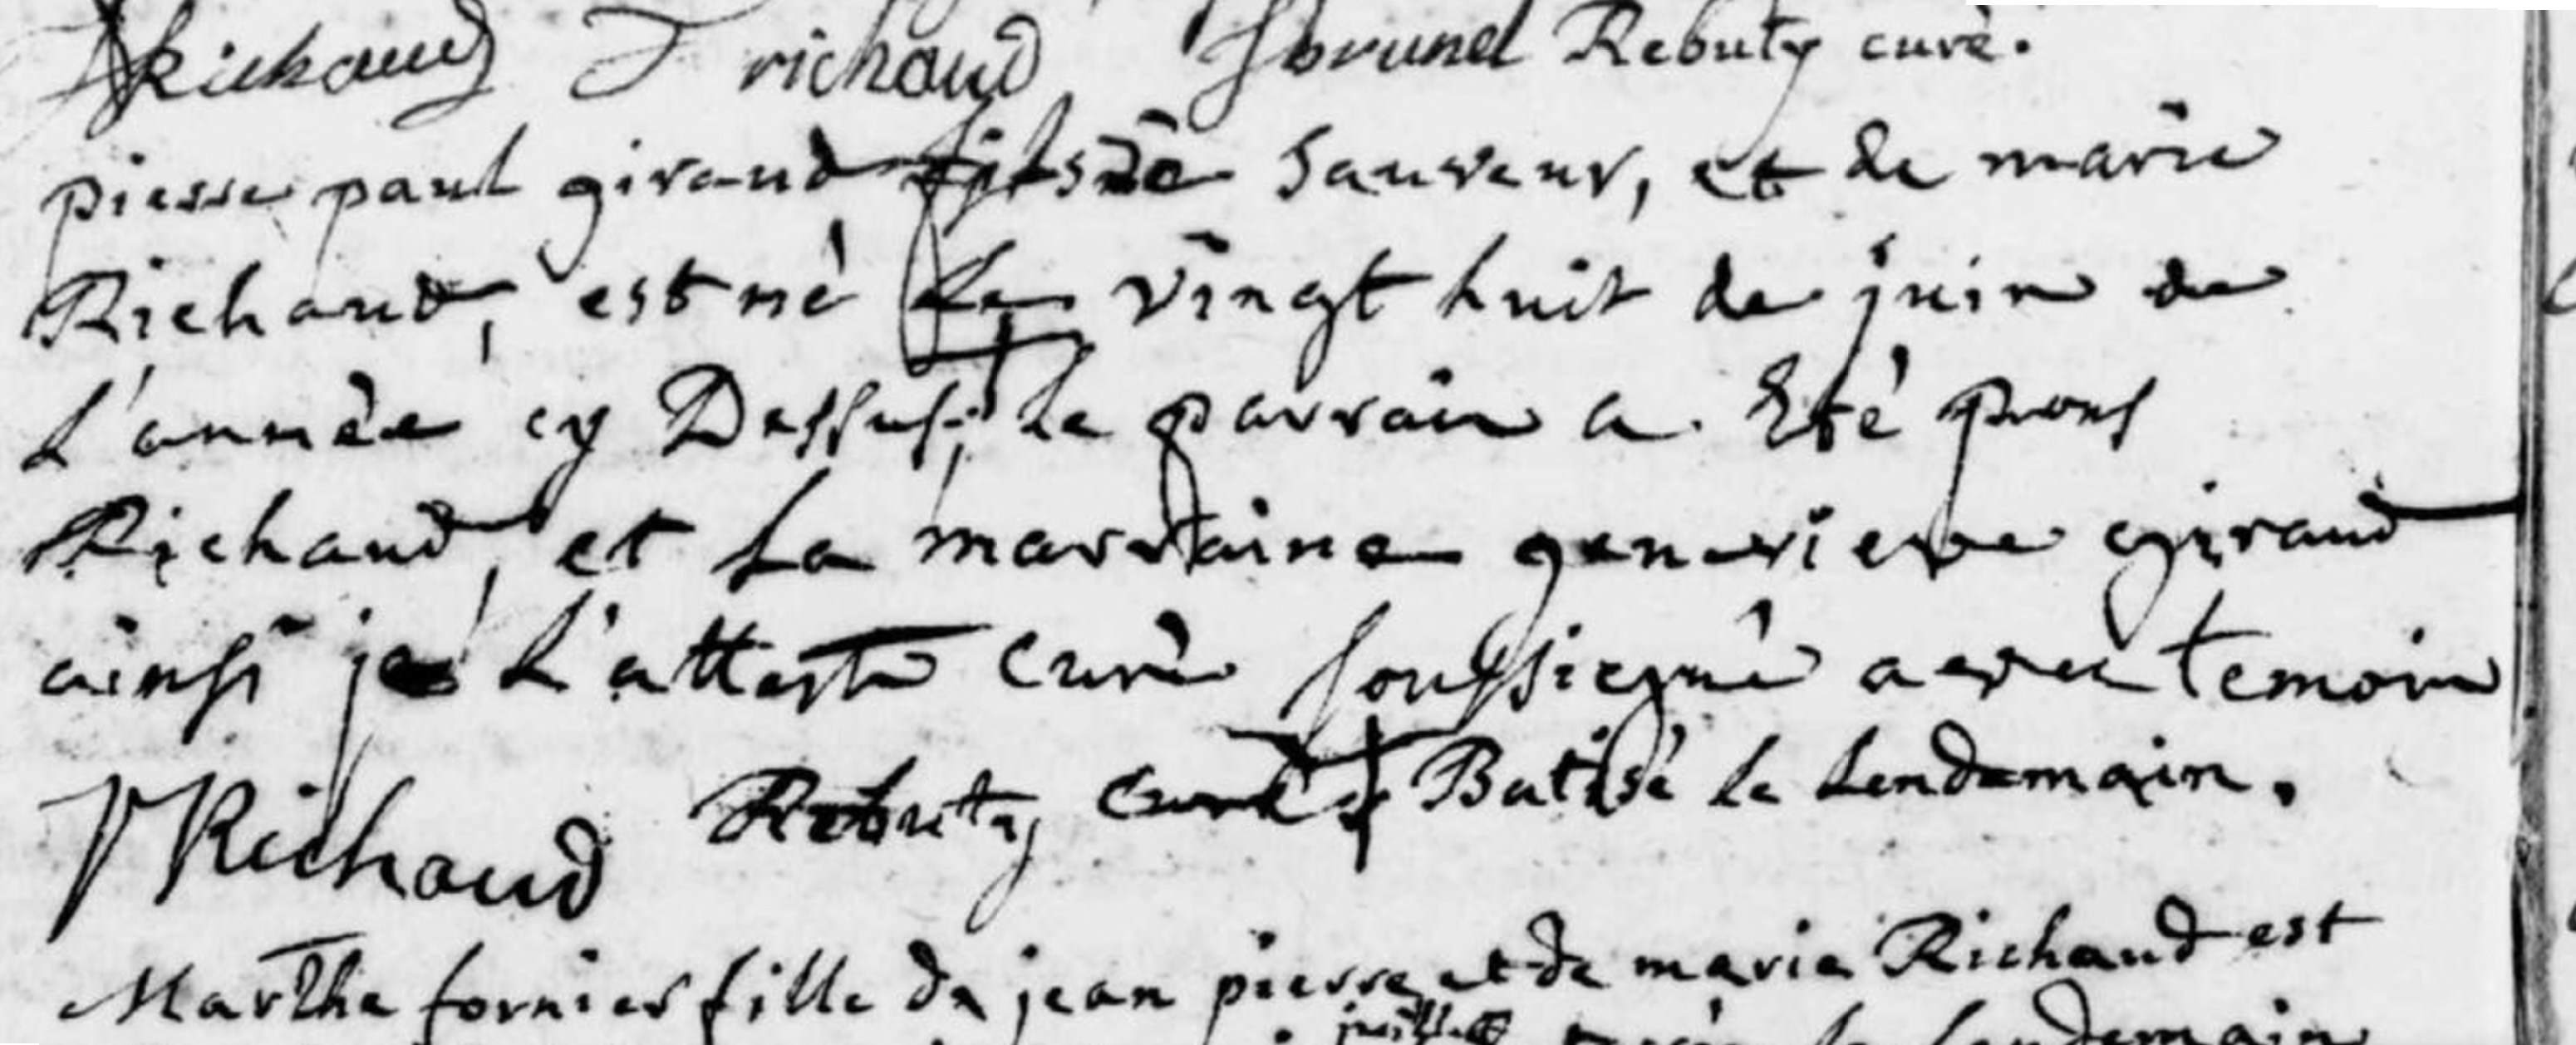 Richaud J richaud J brunel Rebuty curè.
pierre paul giraud fils de Sauveur, et de marie
Richaud, est nè le vingt huit de juin de
L'annèe cy Dessus; le parrain a Etè
Richaud, et La marraine genevieve giraud
ainsi je L'atteste curè soussignè avec temoin
Richaud Rebuty curè Batisè le Lendemain.
Marthe fornier fille de jean pierre et de marie Richaud est
juillet le lendemain